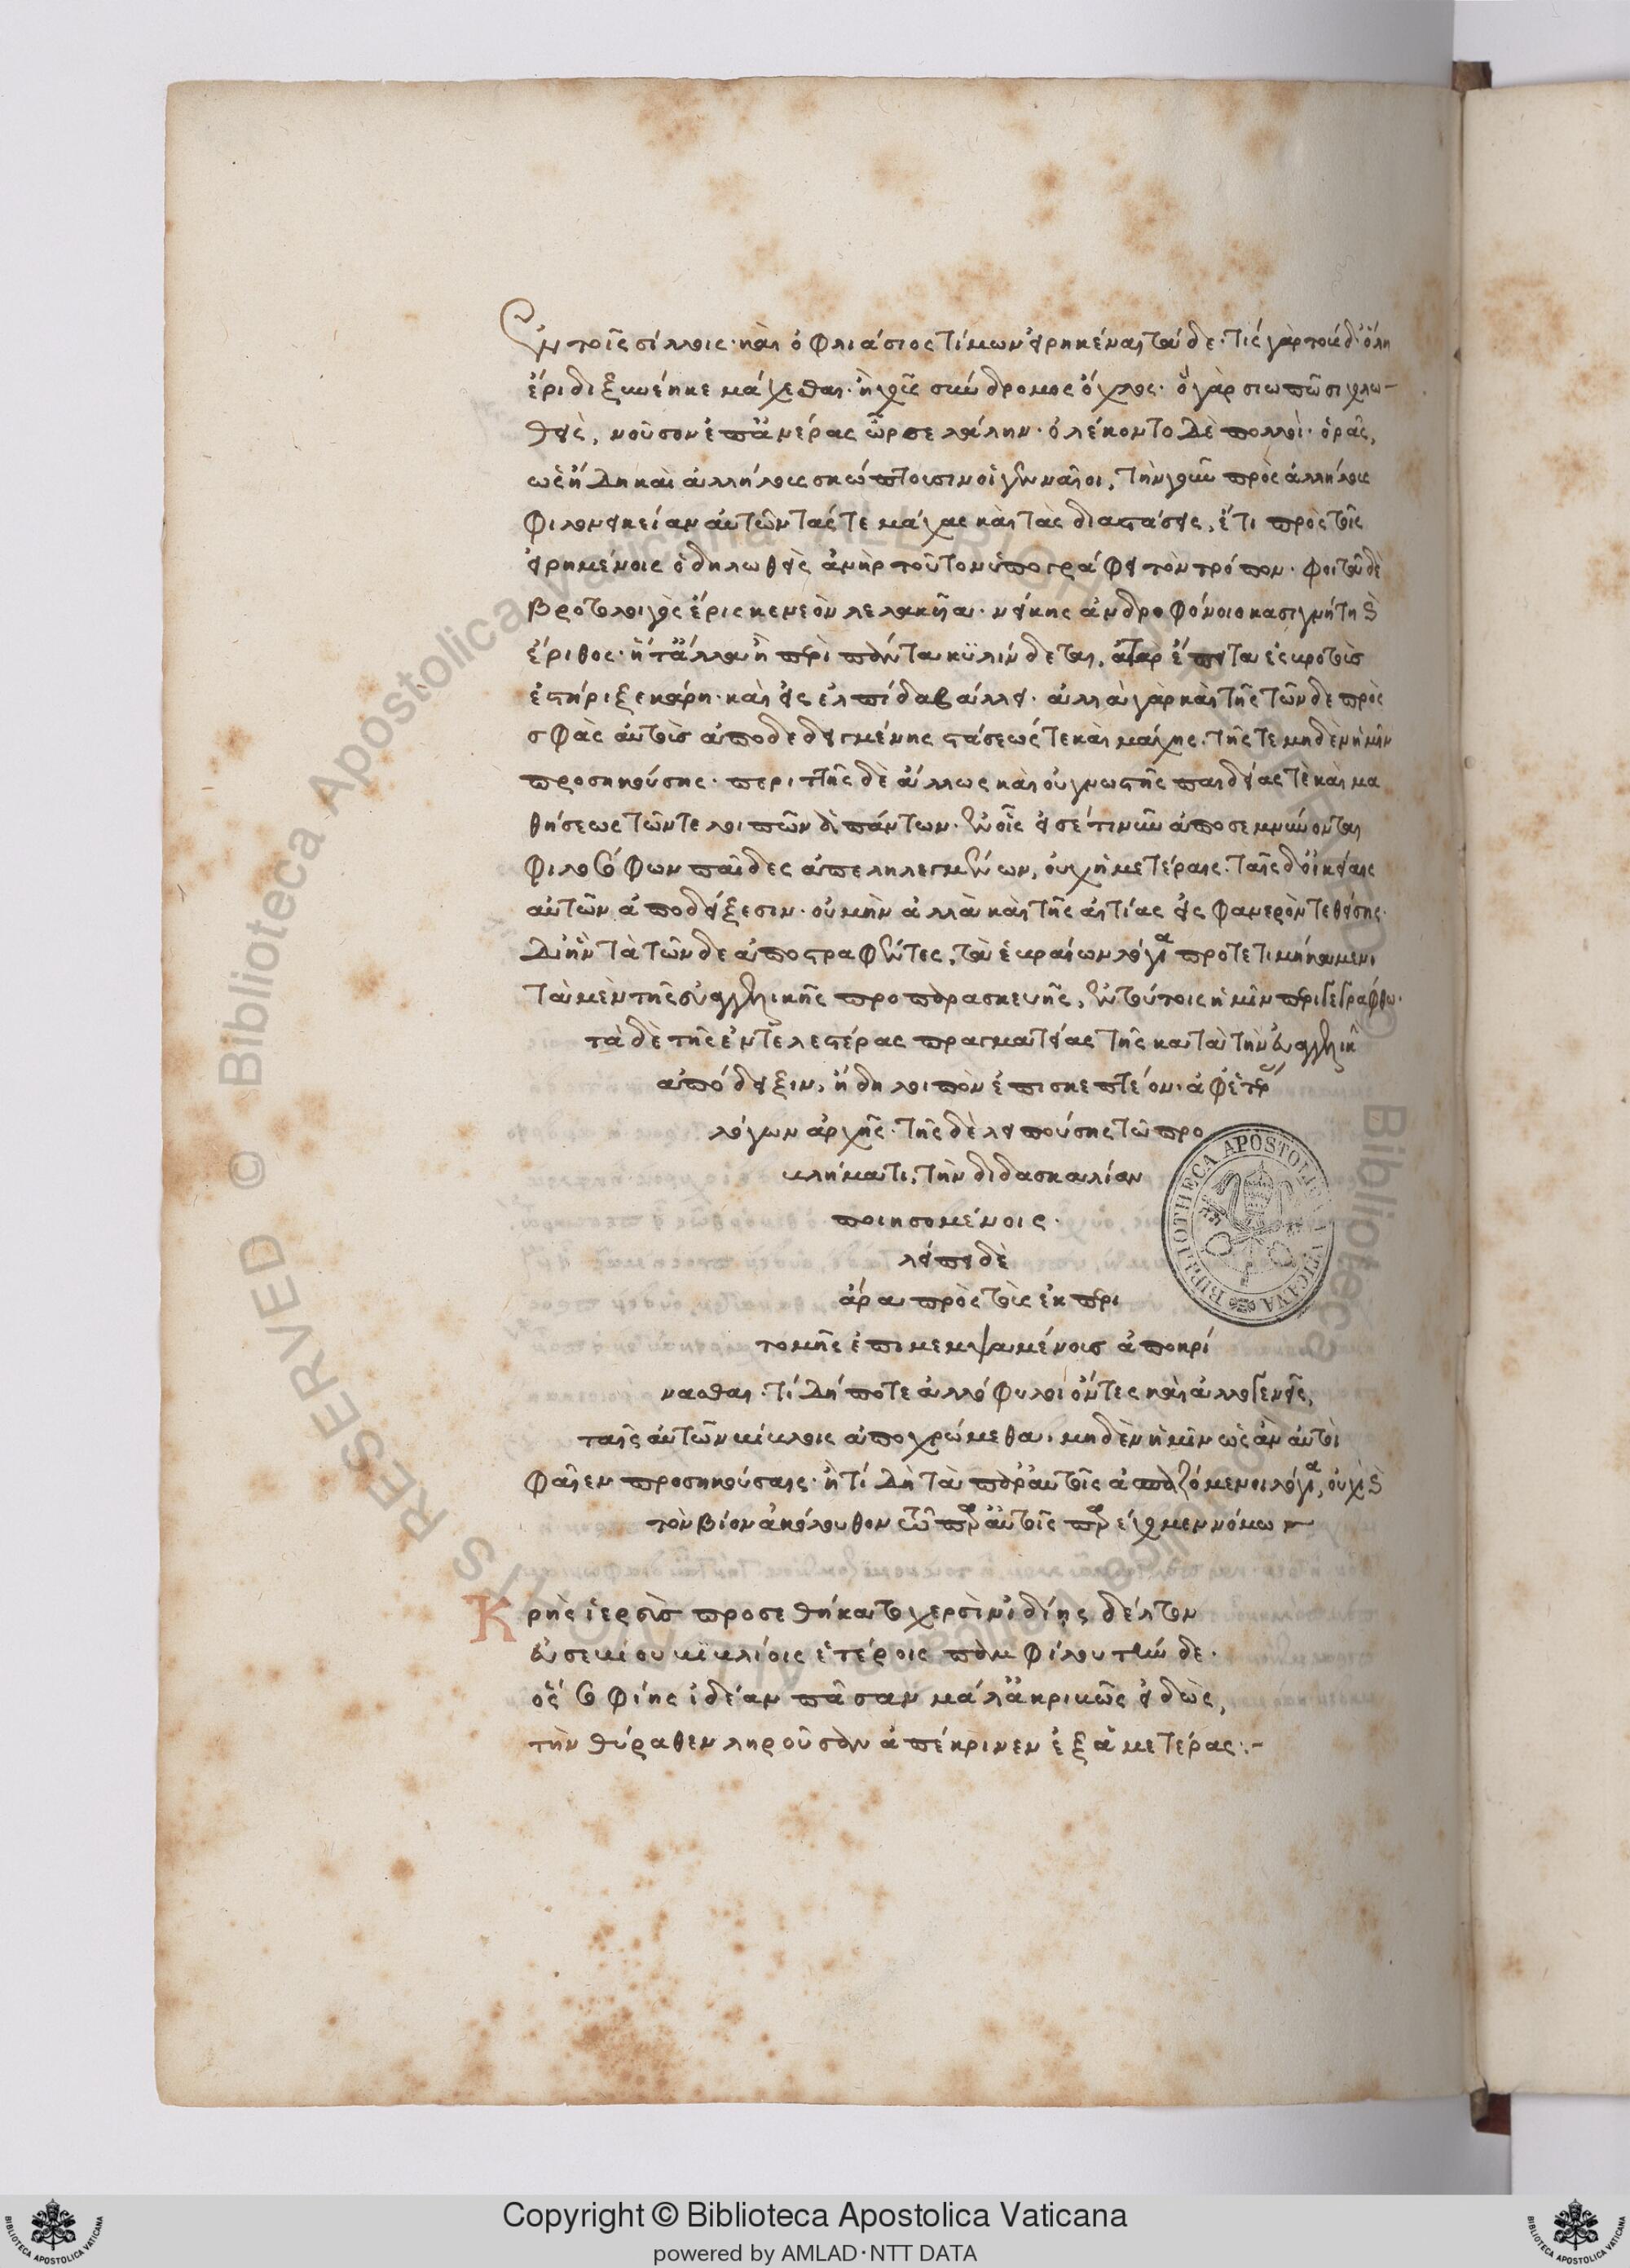 ἐν τοῖς σίλλοις· καὶ ὁ φλιάσιος τίμων εἰρηκέναι τάδε· τίς γὰρ τούσδ' ὀλοῇ
ἔριδι ξυνέηκε μάχεσθαι· ἠχοῦς σύνδρομος ὄχλος· ὁ γὰρ σιωπῶσι χολω-
θεὶς, νοῦσον ἐπ' ἀνέρας ὦρσε λάλην· ὀλέκοντο δὲ πολλοί· ὁρᾷς,
ὡς ἤδη καὶ ἀλλήλους σκώπτουσιν οἱ γενναῖοι, τὴν γοῦν πρὸς ἀλλήλους
φιλονεικείαν αὐτῶν τάς τε μάχας καὶ τὰς διαστάσεις, ἔτι πρὸς τοῖς
εἰρημένοις ὁ δηλωθεὶς ἀνὴρ τοῦτον ὑπογράφει τὸν τρόπον· φοιτᾷ δὲ
βροτολοιγὸς ἔρις κενεὸν λελακυῖα· νείκης ἀνδροφόνοιο κασιγνήτη καὶ
ἔριθος· ἥ τ' ἀλαὴ περὶ πάντα κυλίνδεται, αὐτὰρ ἔπειτα ἐς κροτοὺς
ἐστήριξε κάρη· καὶ εἰς ἐλπίδα βάλλει· ἀλλὰ γὰρ καὶ τῆς τῶνδε πρὸς
σφὰς αὐτοὺς ἀποδεδειγμένης στάσεώς τε καὶ μάχης, τῆς τε μηδὲν ἡμῖν
προσηκούσης· περιττῆς δὲ ἄλλως καὶ οὐ γνωστῆς παιδείας τὲ καὶ μα
θήσεως τῶν τε λοιπῶν δὲ πάντων· ἐν οἷς εἰσέτι νῦν ἀποσεμνύονται
φιλοσόφων παῖδες ἀπεληλεγμένων, οὐχ ἡμετέραις· ταῖς δ' οἰκείαις
αὐτῶν ἀποδείξεσιν· οὐ μὴν ἀλλὰ καὶ τῆς αἰτίας εἰς φανερὸν τεθείσης·
δι' ἣν τὰ τῶνδε ἀποστραφέντες, τὰ ἑβραίων λόγια προτετιμήκαμεν,
τὰ μὲν τῆς εὐαγγελικῆς προπαρασκευῆς, ἐν τούτοις ἡμῖν περιγεγράφθω·
τὰ δὲ τῆς ἐντελεστέρας πραγματείας τῆς κατὰ τὴν εὐαγγελικὴν
ἀπόδειξιν, ἤδη λοιπὸν ἐπισκεπτέον· ἀφ' ἑτέρων
λόγων ἀρχῆς· τῆς δὲ λειπούσης τῷ προ
βλήματι, τὴν διδασκαλίαν
ποιησομένοις·
λείπει δὲ
ἄρα πρὸς τοὺς ἐκ περι
τομῆς ἐπιμεμψαμένους ἀποκρί
νασθαι· τί δήποτε ἀλλόφυλοι ὄντες καὶ ἀλλογενεῖς,
ταῖς αὐτῶν βίβλοις ἀποχρώμεθα, μηδὲν ἡμῖν ὡς ἂν αὐτοὶ
φαῖεν προσηκούσαις· ἢ τί δὴ τὰ παρ' αὐτοῖς ἀσπαζόμενοι λόγια, οὐχὶ καὶ
τὸν βίον ἀκόλουθον τῷ παρ' αὐτοῖς παρείχομεν νόμῳ
κρὴς ἱερεὺς προσεθήκατο χερσὶν ἰδίῃς δέλτον
εὐσεβίου βιβλίοις ἑτέροις πάμφιλον τήνδε·
ὃς σοφίης ἰδέαν πᾶσαν μάλ' ἀκριβῶς εἰδὼς,
τὴν θύραθεν ληροῦσαν ἀπέκρινεν ἐξ ἁμετέρας:-
Copyright © Biblioteca Apostolica Vaticana
powered by AMLAD·NTT DATA